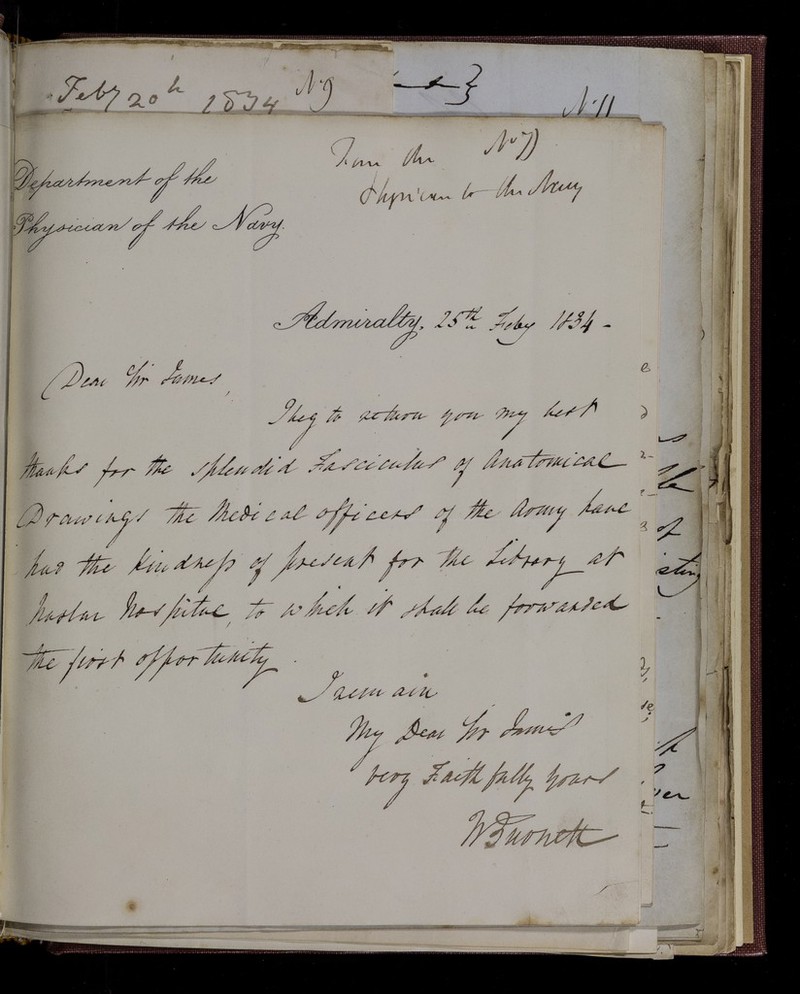 Feby 20th 1834 No 9
No 11
From the No 7)
Physician to the Navy
Department of the
Physician of the Navy.
Admiralty, 25th Feby 1834 -
Dear Sir James,
I beg to return you my best
thanks for the splendid Fasciculus of Anatomical
Drawings the Medical officers of the Army have
had the kindness of present for the Library at
Haslar Hospital, to which it shall be forwarded
the first opportunity.
I remain
My Dear Sir James
very Faithfully yours
W Burnett